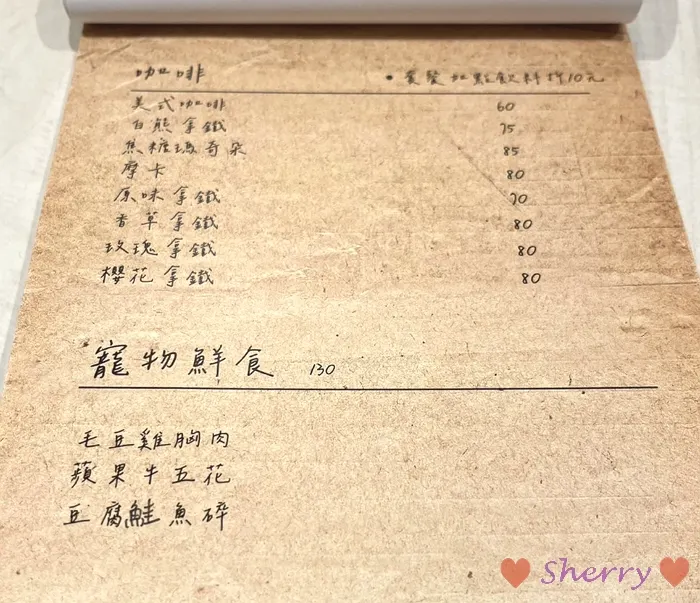 咖啡 • 套餐加點飲料折10元
美式咖啡 60
白熊拿鐵 75
焦糖瑪奇朵 85
摩卡 80
原味拿鐵 70
香草拿鐵 80
玫瑰拿鐵 80
櫻花拿鐵 80
寵物鮮食 130
毛豆雞胸肉
蘋果牛五花
豆腐鮭魚碎
Sherry